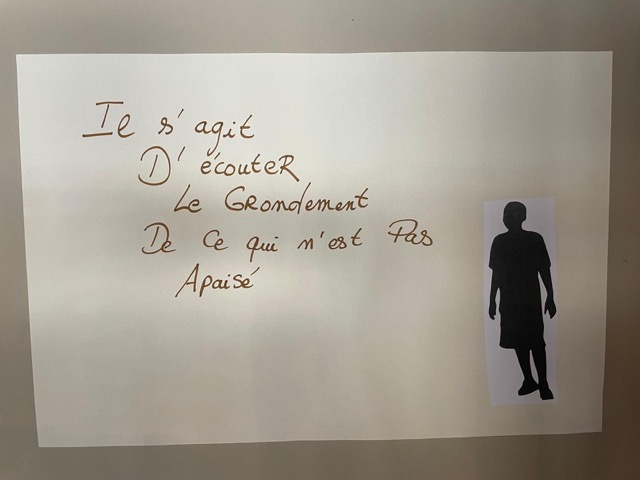 Il s'agit
D'écouter
Le Grondement
De Ce qui n'est Pas
Apaisé